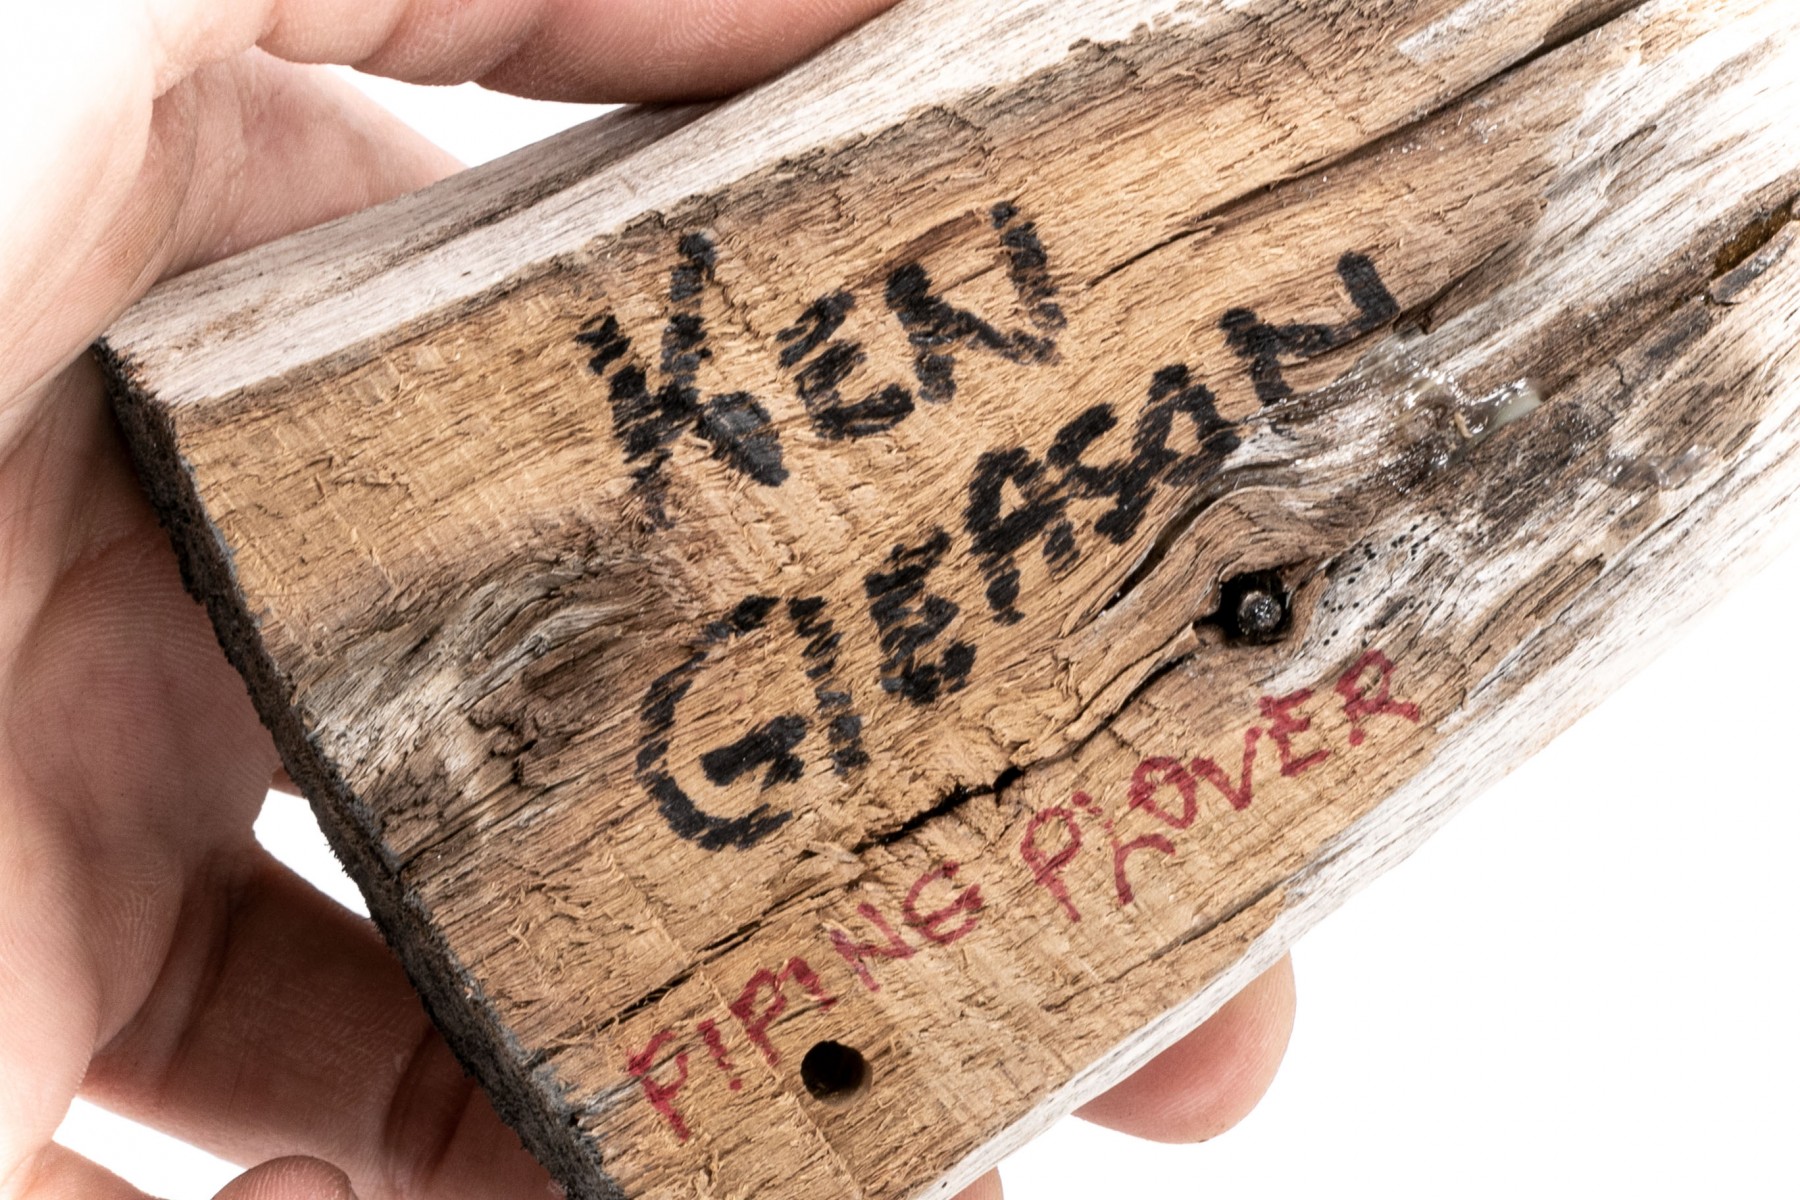 KEN
GLEASON
PIPING PLOVER